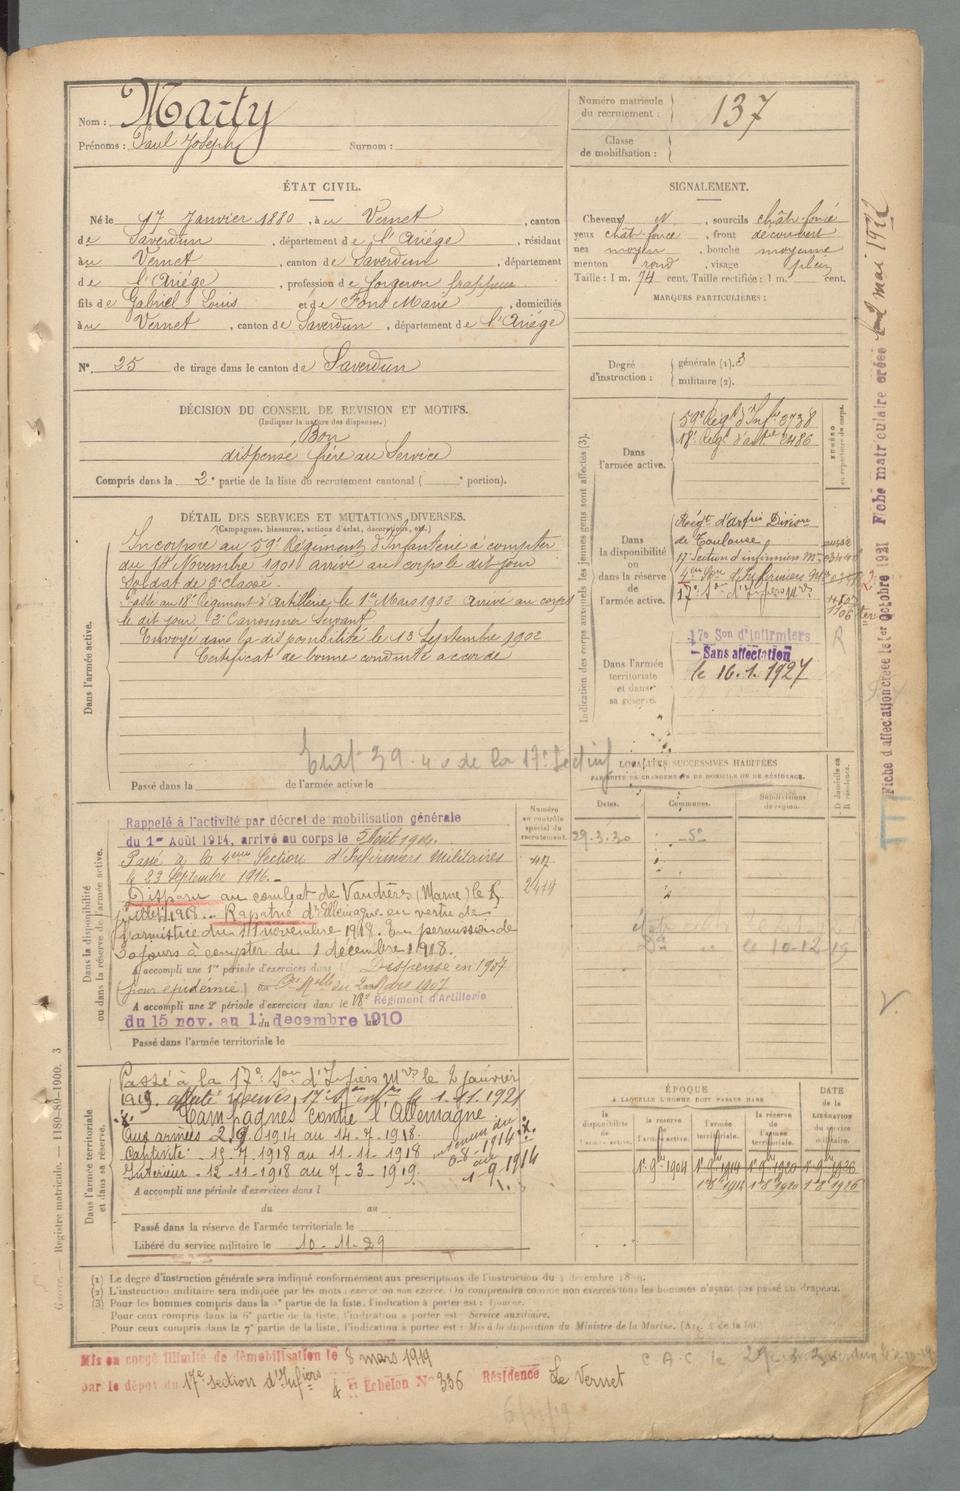 Nom : Marty
Prénoms : Paul Joseph Surnom :
Numéro matricule du recrutement : 137
Classe de mobilisation :
ÉTAT CIVIL.
Né le 17 Janvier 1880, à u Vernet, canton
de Saverdun, département de l'Ariége, résidant
à u Vernet, canton de Saverdun, département
de l'Ariége, profession de forgeron frappeur
fils de Gabriel Louis et de Fons Marie, domiciliés
à u Vernet, canton de Saverdun, département de l'Ariége
SIGNALEMENT.
Cheveux N, sourcils chât-foncé
yeux chât foncé, front découvert
nez moyen, bouche moyenne
menton rond, visage plein
Taille : 1 m. 74 cent. Taille rectifiée : 1 m. cent.
MARQUES PARTICULIÈRES :
N° 25 de tirage dans le canton de Saverdun
Degré d'instruction : générale (1). 3
militaire (2).
DÉCISION DU CONSEIL DE REVISION ET MOTIFS.
(Indiquer la nature des dispenses.)
Bon
dispensé frère au Service
Compris dans la 2e partie de la liste du recrutement cantonal ( e portion).
DÉTAIL DES SERVICES ET MUTATIONS DIVERSES.
(Campagnes, blessures, actions d'éclat, décorations, etc.)
Dans l'armée active.
Incorporé au 59e Régiment d'Infanterie à compter
du 14 Novembre 1901 arrivé au corps le dit jour
Soldat de 2e classe.
Passé au 18e Régiment d'artillerie le 1er Mars 1902 Arrivé au corps
le dit jour 2e Canonnier Servant.
Envoyé dans la disponibilité le 13 Septembre 1902
Certificat de bonne conduite accordé
Passé dans la de l'armée active le
Indication des corps auxquels les jeunes gens sont affectés (3).
Dans l'armée active.
59e Régt d'Infie 3738
18e Régt d'artie 2486
Dans la disponibilité ou dans la réserve de l'armée active.
Régt d'artie Division
de Toulouse
17 Section d'infirmiers Mres
4eme Son d'Infirmiers Mres
17e Son d'Infiers Mres
Dans l'armée territoriale et dans sa réserve.
17e Son d'Infirmiers
Sans affectation
le 16.1.1927
Fiche d'affectation créée le 1er Octobre 1921 Fiche matriculaire créée
LOCALITÉS SUCCESSIVES HABITÉES
PAR SUITE DE CHANGEMENTS DE DOMICILE OU DE RÉSIDENCE.
Dates. Communes. Subdivisions de région. D domicile ou R résidence.
29.3.30
Dans la disponibilité ou dans la réserve de l'armée active.
Numéro au contrôle spécial du recrutement.
2419
Rappelé à l'activité par décret de mobilisation générale
du 1er Août 1914, arrivé au corps le 5 Août 1914.
Passé à la 4eme Section d'Infirmiers Militaires
le 23 Septembre 1916.
Disparu au combat de Vandières (Marne) le 15
juillet 1918. Rapatrié d'Allemagne en vertu de
l'armistice du 11 novembre 1918. En permission de
30 jours à compter du 1 décembre 1918.
A accompli une 1re période d'exercices dans Dispensé en 1907
(pour epidemie)
A accompli une 2e période d'exercices dans le 18e Régiment d'Artillerie
du 15 nov. au 1 du decembre 1910
Passé dans l'armée territoriale le
Dans l'armée territoriale et dans sa réserve.
Passé à la 17e Son d'Infiers Mres le 2 janvier
1919. affecté réserves 17e Son infiers le 1.11.1921
Campagnes contre l'Allemagne
Aux armées 2.9.1914 au 14-7-1918.
Captivité - 15-7-1918 au 11-11-1918
Intérieur - 12-11-1918 au 7-3-1919.
A accompli une période d'exercices dans l
du au
Passé dans la réserve de l'armée territoriale le
Libéré du service militaire le 10-11-29
ÉPOQUE
À LAQUELLE L'HOMME DOIT PASSER DANS
la disponibilité de l'armée active. la réserve de l'armée active. l'armée territoriale. la réserve de l'armée territoriale.
DATE de la LIBÉRATION du service militaire.
1er 9bre 1904 1er 9bre 1914 1er 9bre 1920 1er 9bre 1926
1er 8bre 1914 1er 8bre 1920 1er 8bre 1926
(1) Le degré d'instruction générale sera indiqué conformément aux prescriptions de l'instruction du
(2) L'instruction militaire sera indiquée par les mots : exercé ou non exercé. On comprendra comme non exercés tous les hommes n'ayant pas passé au drapeau.
(3) Pour les hommes compris dans la partie de la liste, l'indication à porter est :
Pour ceux compris dans la 6e partie de la liste, l'indication à porter est Service auxiliaire.
Pour ceux compris dans la 7e partie de la liste, l'indication à porter est : Mis à la disposition du Ministre de la Marine.
Mis en congé illimité de démobilisation le 8 mars 1919
par le dépôt du 17e section d'Infiers 4 e Echelon N° 336 Résidence Le Vernet
Registre matricule. — 1180-89-1900. 3